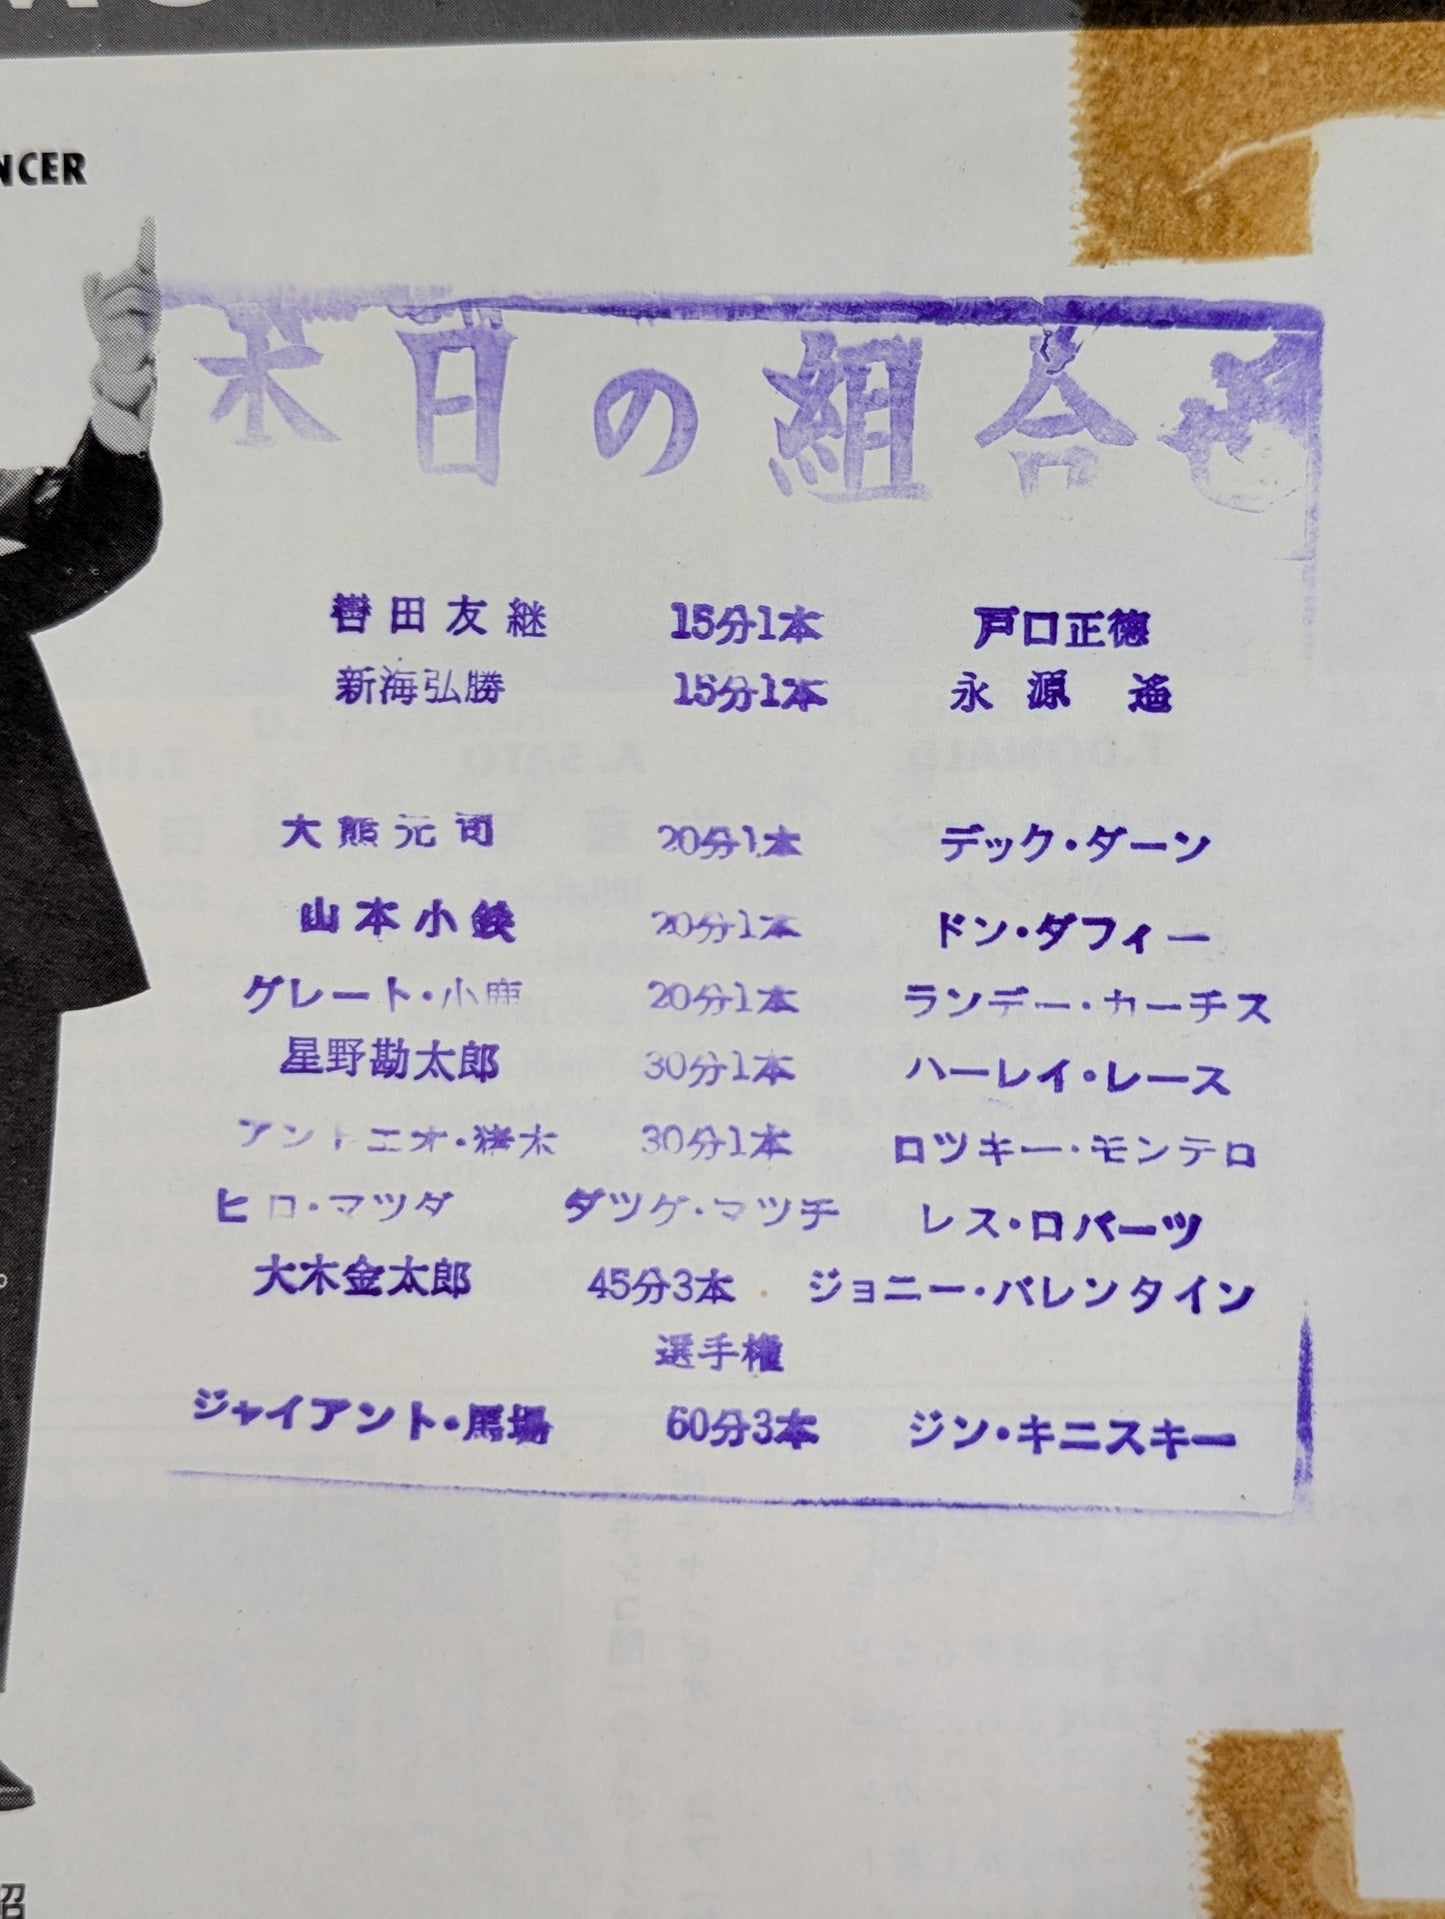 NCER
本日の組合せ
轡田友継 15分1本 戸口正徳
新海弘勝 15分1本 永源遥
大熊元司 20分1本 デック・ダーン
山本小鉄 20分1本 ドン・ダフィー
グレート・小鹿 20分1本 ランデー・カーチス
星野勘太郎 30分1本 ハーレイ・レース
アントニオ・猪木 30分1本 ロツキー・モンテロ
ヒロ・マツダ ダツグ・マツチ レス・ロバーツ
大木金太郎 45分3本 ジョニー・バレンタイン
選手権
ジャイアント・馬場 60分3本 ジン・キニスキー